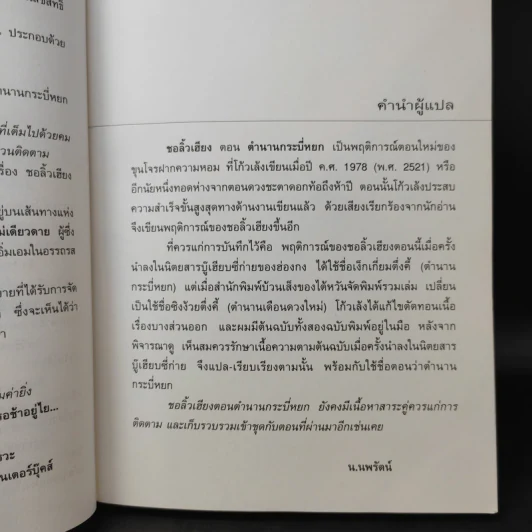 ประกอบด้วย
ตำนานกระบี่หยก
ที่เต็มไปด้วยคม
ชวนติดตาม
เรื่อง ชอลิ้วเฮียง
อยู่บนเส้นทางแห่ง
ผู้ซึ่ง
ที่ได้รับการจัด
ซึ่งจะเห็นได้ว่า
คำนำผู้แปล
ชอลิ้วเฮียง ตอน ตำนานกระบี่หยก เป็นพฤติการณ์ตอนใหม่ของ
ขุนโจรฝากความหอม ที่โก้วเล้งเขียนเมื่อปี ค.ศ. 1978 (พ.ศ. 2521) หรือ
อีกนัยหนึ่งทอดห่างจากตอนดวงชะตาดอกท้อถึงห้าปี ตอนนั้นโก้วเล้งประสบ
ความสำเร็จขั้นสูงสุดทางด้านงานเขียนแล้ว ด้วยเสียงเรียกร้องจากนักอ่าน
จึงเขียนพฤติการณ์ของชอลิ้วเฮียงขึ้นอีก
ที่ควรแก่การบันทึกไว้คือ พฤติการณ์ของชอลิ้วเฮียงตอนนี้เมื่อครั้ง
นำลงในนิตยสารบู๊เฮียบซี่ก่ายของฮ่องกง ได้ใช้ชื่อเง็กเกี่ยมตึ่งคี้ (ตำนาน
กระบี่หยก) แต่เมื่อสำนักพิมพ์บ้วนเส็งของไต้หวันจัดพิมพ์รวมเล่ม เปลี่ยน
เป็นใช้ชื่อซิงง้วยตึ่งคี้ (ตำนานเดือนดวงใหม่) โก้วเล้งได้แก้ไขตัดทอนเนื้อ
เรื่องบางส่วนออก และผมมีต้นฉบับทั้งสองฉบับพิมพ์อยู่ในมือ หลังจาก
พิจารณาดู เห็นสมควรรักษาเนื้อความตามต้นฉบับเมื่อครั้งนำลงในนิตยสาร
บู๊เฮียบซี่ก่าย จึงแปล-เรียบเรียงตามนั้น พร้อมกับใช้ชื่อตอนว่าตำนาน
กระบี่หยก
ชอลิ้วเฮียงตอนตำนานกระบี่หยก ยังคงมีเนื้อหาสาระคู่ควรแก่การ
ติดตาม และเก็บรวบรวมเข้าชุดกับตอนที่ผ่านมาอีกเช่นเคย
น.นพรัตน์